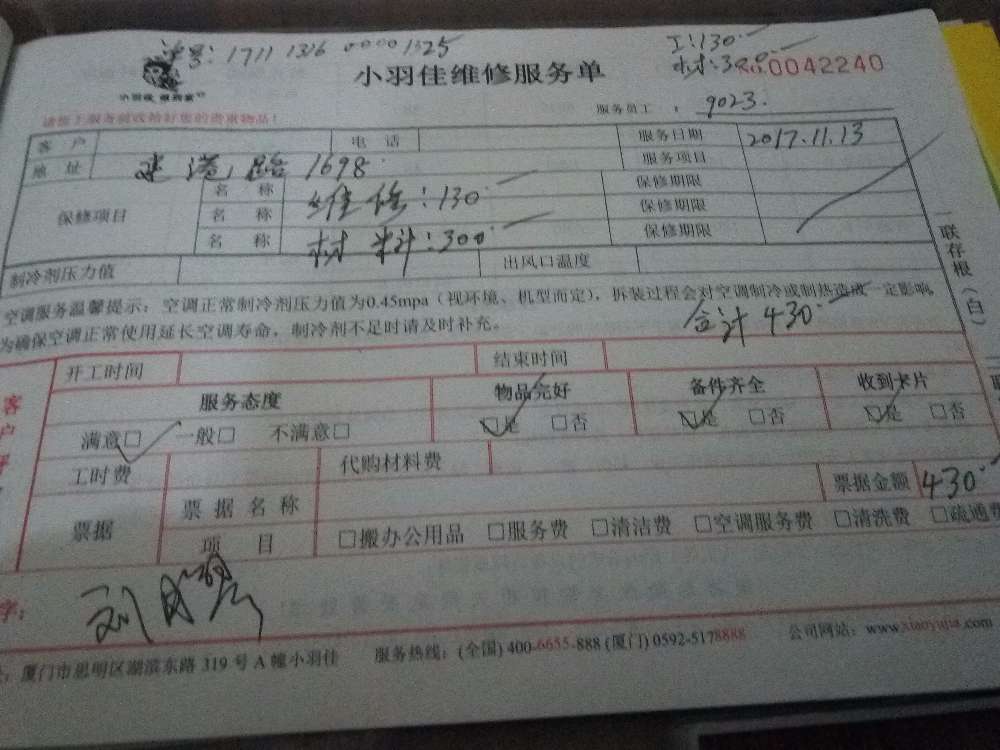 单号：1711 1316 0000 1325
工：130.
材：300.
小羽佳维修服务单
No.0042240
小羽佳 做到家
服务员工 ： 9023.
请您于服务前收拾好您的贵重物品！
客 户 电 话 服务日期 2017.11.13
地 址 建港路1698 服务项目
保修项目 名 称 维修：130 保修期限
名 称 保修期限
名 称 材料：300 保修期限
制冷剂压力值 出风口温度
空调服务温馨提示：空调正常制冷剂压力值为0.45mpa（视环境、机型而定），拆装过程会对空调制冷或制热造成一定影响，
为确保空调正常使用延长空调寿命，制冷剂不足时请及时补充。
合计430.
一联存根（白）
开工时间 结束时间
服务态度 物品完好 备件齐全 收到卡片
满意□ 一般□ 不满意□ □是 □否 □是 □否 □是 □否
工时费 代购材料费
票据 票据名称 票据金额 430.
项 目 □搬办公用品 □服务费 □清洁费 □空调服务费 □清洗费 □疏通费
字：
厦门市思明区湖滨东路 319 号 A 幢小羽佳 服务热线：(全国) 400-6655-888 (厦门) 0592-5178888 公司网站：www.xiaoyujia.com